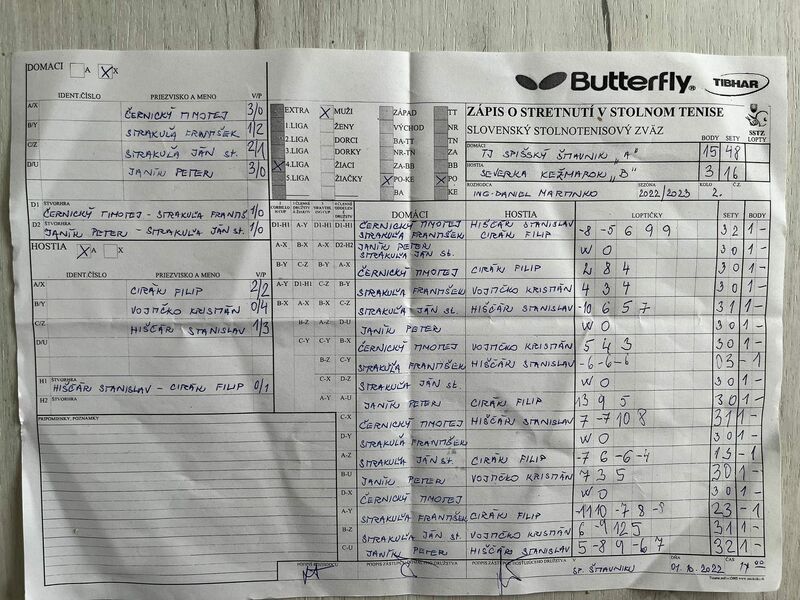 DOMÁCI A X
IDENT.ČÍSLO PRIEZVISKO A MENO V/P
A/X ČERNICKÝ TIMOTEJ 3/0
B/Y STRAKUĽA FRANTIŠEK 1/2
C/Z STRAKUĽA JÁN ST. 2/1
D/U JANÍK PETER 3/0
D1 ŠTVORHRA
ČERNICKÝ TIMOTEJ - STRAKUĽA FRANTIŠ 1/0
D2 ŠTVORHRA
JANÍK PETER - STRAKUĽA JÁN ST. 1/0
HOSTIA A X
IDENT.ČÍSLO PRIEZVISKO A MENO V/P
A/X CIRÁK FILIP 2/2
B/Y VOJTIČKO KRISTIÁN 0/4
C/Z HIŠČÁR STANISLAV 1/3
D/U
H1 ŠTVORHRA
HIŠČÁR STANISLAV - CIRÁK FILIP 0/1
H2 ŠTVORHRA
PRIPOMIENKY, POZNÁMKY
Butterfly TIBHAR
EXTRA MUŽI ZÁPAD TT
1.LIGA ŽENY VÝCHOD NR
2.LIGA DORCI BA-TT TN
3.LIGA DORKY NR-TN ZA
4.LIGA ŽIACI ZA-BB BB
5.LIGA ŽIAČKY PO-KE PO
BA KE
ZÁPIS O STRETNUTÍ V STOLNOM TENISE
SLOVENSKÝ STOLNOTENISOVÝ ZVÄZ
SSTZ
BODY SETY LOPTY
DOMÁCI TJ SPIŠSKÝ ŠTIAVNIK "A" 15 48
HOSTIA SEVERKA KEŽMAROK "B" 3 16
ROZHODCA ING. DANIEL MARTINKO SEZÓNA 2022/2023 KOLO 2. Č.Z.
DOMÁCI HOSTIA LOPTIČKY SETY BODY
D1-H1 A-Y D1-H1 D1-H1 ČERNICKÝ TIMOTEJ STRAKUĽA FRANTIŠEK HIŠČÁR STANISLAV CIRÁK FILIP -8 -5 6 9 9 3 2 1 -
A-X B-X A-X D2-H2 JANÍK PETER STRAKUĽA JÁN ST. W O 3 0 1 -
B-Y C-Z B-Y A-X ČERNICKÝ TIMOTEJ CIRÁK FILIP 2 8 4 3 0 1 -
A-Y D1-H1 C-Z B-Y STRAKUĽA FRANTIŠEK VOJTIČKO KRISTIÁN 4 3 4 3 0 1 -
B-X A-X A-Y C-Z STRAKUĽA JÁN ST. HIŠČÁR STANISLAV -10 6 5 7 3 1 1 -
B-Z A-Z D-U JANÍK PETER W O 3 0 1 -
C-Y B-X ČERNICKÝ TIMOTEJ VOJTIČKO KRISTIÁN 5 4 3 3 0 1 -
B-Z C-Y STRAKUĽA FRANTIŠEK HIŠČÁR STANISLAV -6 -6 -6 0 3 - 1
C-X D-Z STRAKUĽA JÁN ST. W O 3 0 1 -
A-Y A-U JANÍK PETER CIRÁK FILIP 13 9 5 3 0 1 -
C-X ČERNICKÝ TIMOTEJ HIŠČÁR STANISLAV 7 -7 10 8 3 1 1 -
D-Y STRAKUĽA FRANTIŠEK W O 3 0 1 -
A-Z STRAKUĽA JÁN ST. CIRÁK FILIP -7 6 -6 -4 1 3 - 1
B-U JANÍK PETER VOJTIČKO KRISTIÁN 7 3 5 3 0 1 -
D-X ČERNICKÝ TIMOTEJ W O 3 0 1 -
A-Y STRAKUĽA FRANTIŠEK CIRÁK FILIP -11 10 -7 8 -8 2 3 - 1
B-Z STRAKUĽA JÁN ST. VOJTIČKO KRISTIÁN 6 -9 12 5 3 1 1 -
C-U JANÍK PETER HIŠČÁR STANISLAV 5 -8 9 -6 7 3 2 1 -
PODPIS ROZHODCU PODPIS ZÁSTUPCU DOMÁCEHO DRUŽSTVA PODPIS ZÁSTUPCU HOSŤUJÚCEHO DRUŽSTVA SP. ŠTIAVNIKU DŇA 01.10.2022 ČAS 17 00